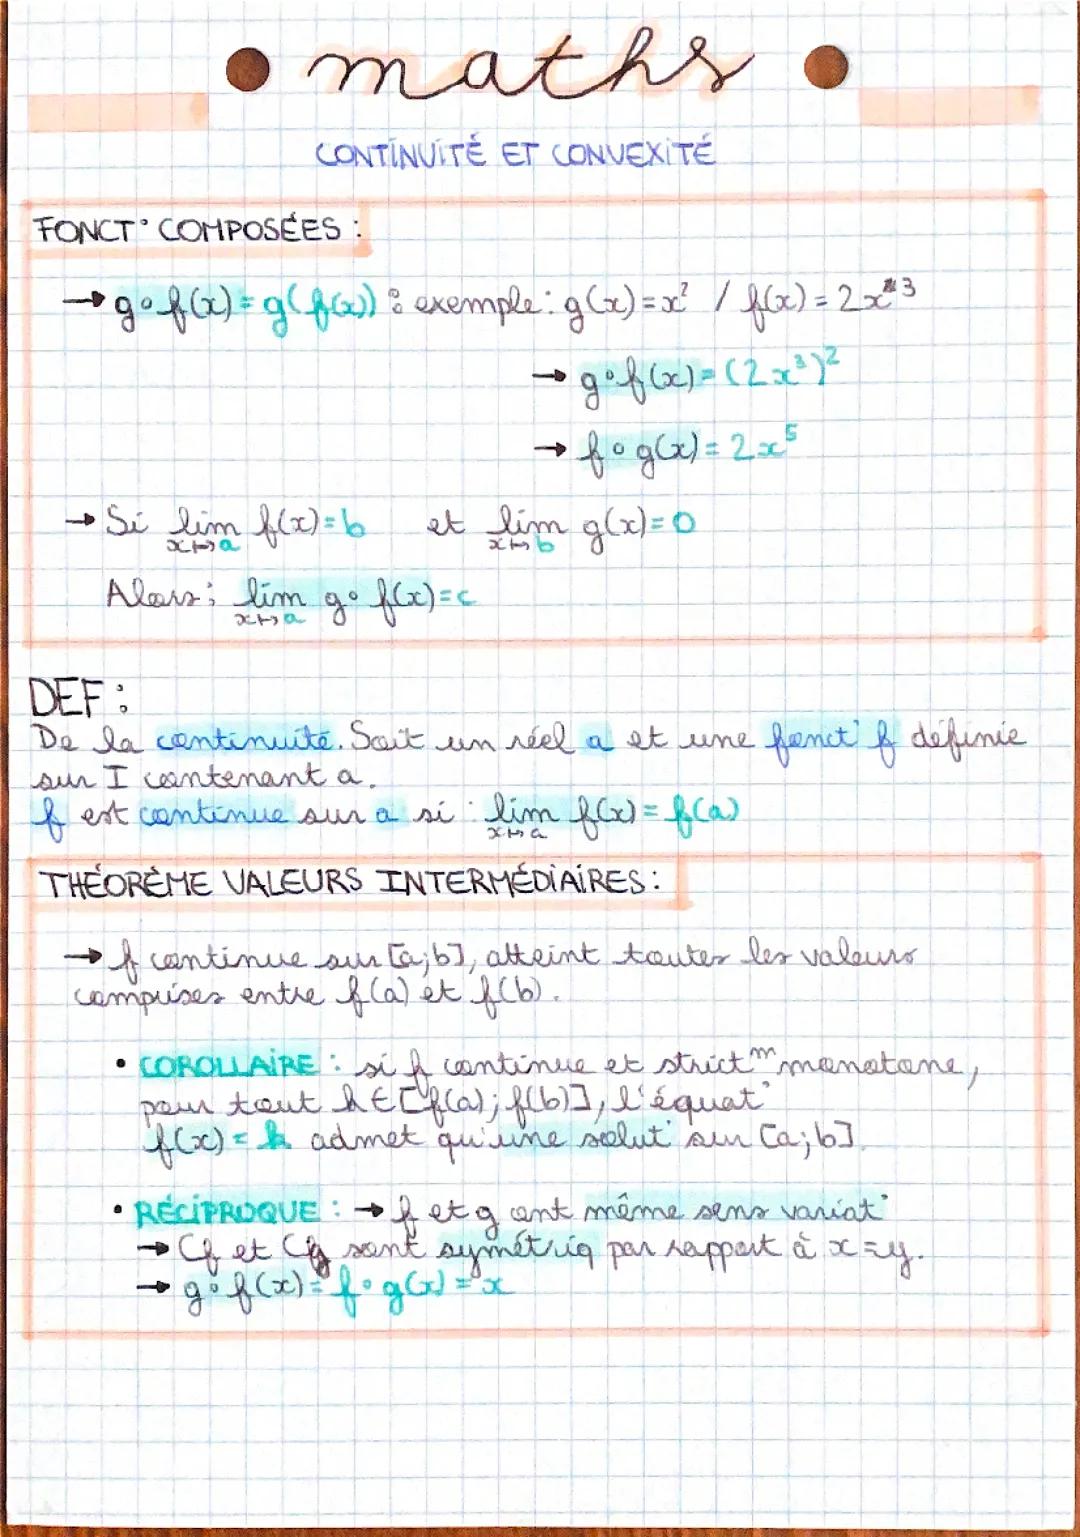 • maths •
CONTINUITÉ ET CONVEXITÉ
FONCT° COMPOSÉES :
→ g∘f(x) = g(f(x)) : exemple : g(x) = x² / f(x) = 2x³
→ g∘f(x) = (2x³)²
→ f∘g(x) = 2x⁵
→ Si lim f(x) = b et lim g(x) = 0
x↦a x↦b
Alors ; lim g∘f(x) = c
x↦a
DEF :
De la continuité. Soit un réel a et une fonct° f définie
sur I contenant a.
f est continue sur a si : lim f(x) = f(a)
x↦a
THÉORÈME VALEURS INTERMÉDIAIRES :
→ f continue sur [a;b], atteint toutes les valeurs
comprises entre f(a) et f(b).
• COROLLAIRE : si f continue et strictᵐ monotone,
pour tout k ∈ [f(a); f(b)], l'équat°
f(x) = k admet qu'une solut° sur [a;b]
• RÉCIPROQUE : → f et g ont même sens variat°
→ Cf et Cg sont symétriq par rapport à x=y.
→ g∘f(x) = f∘g(x) = x